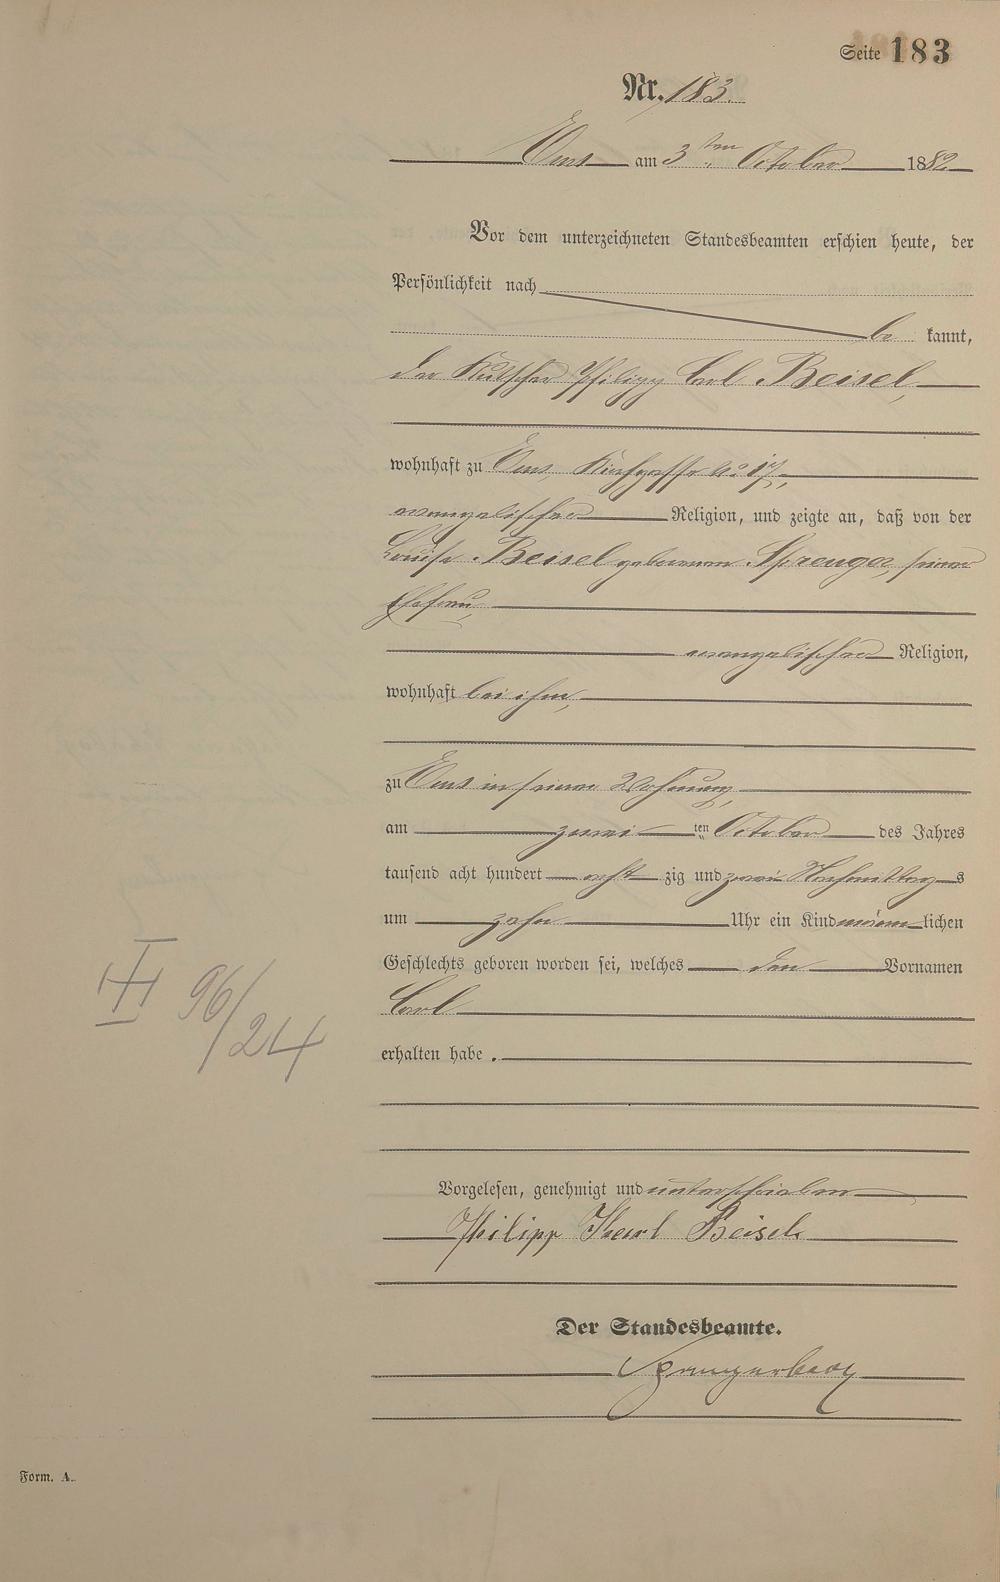 Seite 183
Nr. 183.
Ems am 3ten October 1882
Vor dem unterzeichneten Standesbeamten erschien heute, der
Persönlichkeit nach
be kannt,
der Kutscher Philipp Carl Beisel,
wohnhaft zu Ems, Kirchgasse No 17,
evangelischer Religion, und zeigte an, daß von der
Louise Beisel geborenen Sprenger, seiner
Ehefrau,
evangelischer Religion,
wohnhaft bei ihm,
zu Ems in seiner Wohnung,
am zwei ten October des Jahres
tausend acht hundert acht zig und zwei Nachmittags
um zehn Uhr ein Kind männlichen
Geschlechts geboren worden sei, welches den Vornamen
Carl
erhalten habe.
Vorgelesen, genehmigt und unterschrieben
Philipp Karl Beisel
Der Standesbeamte.
96/24
Form. A.